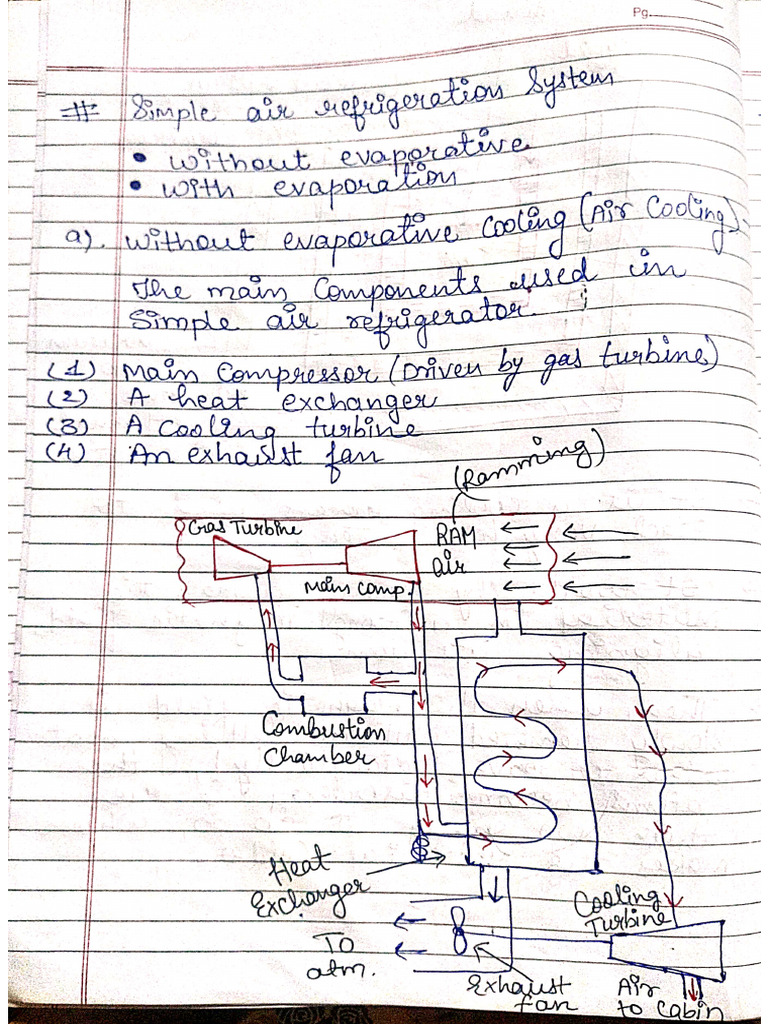 Pg.
# Simple air refrigeration System
• without evaporative
• with evaporation
a). without evaporative cooling (Air Cooling).
The main Components used in
Simple air refrigerator. :
(1) Main Compressor (Driven by gas turbine)
(2) A heat exchanger
(3) A cooling turbine
(4) An exhaust fan
(Ramming)
Gas Turbine
RAM
air
Main Comp.
Combustion
Chamber
Heat
Exchanger
Cooling
Turbine
TO
atm.
Exhaust
fan
Air
to Cabin